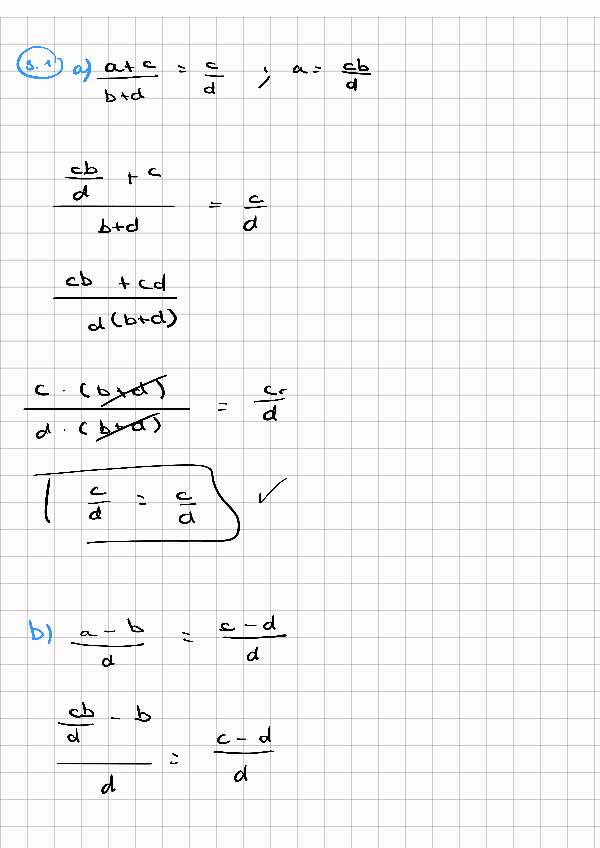 3.1 a) (a+c)/(b+d) = c/d ; a = cb/d
(cb/d + c)/(b+d) = c/d
(cb + cd)/(d(b+d))
(c · (b+d))/(d · (b+d)) = c/d
c/d = c/d ✓
b) (a - b)/d = (c - d)/d
(cb/d - b)/d = (c - d)/d